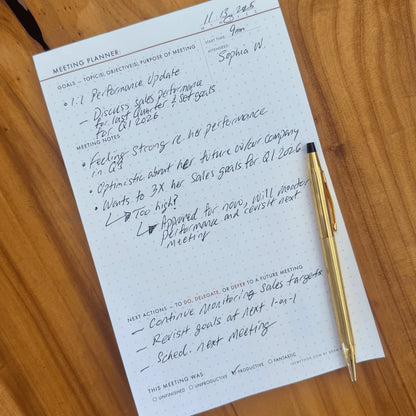 11.13.2025
MEETING PLANNER
START TIME: 9am
ATTENDEES:
Sophia W.
GOALS – TOPIC(S), OBJECTIVE(S), PURPOSE OF MEETING
• 1:1 Performance Update
– Discuss sales performance
for last quarter & set goals
for Q1 2026
MEETING NOTES
• Feeling strong re. her performance
in Q3
• Optimistic about her future w/our company
• Wants to 3X her sales goals for Q1 2026
Too high?
Approved for now, will monitor
performance and revisit next
meeting
NEXT ACTIONS – TO DO, DELEGATE, OR DEFER TO A FUTURE MEETING
– Continue monitoring sales targets
– Revisit goals at next 1-on-1
– Sched. next meeting
THIS MEETING WAS:
UNFINISHED UNPRODUCTIVE PRODUCTIVE FANTASTIC